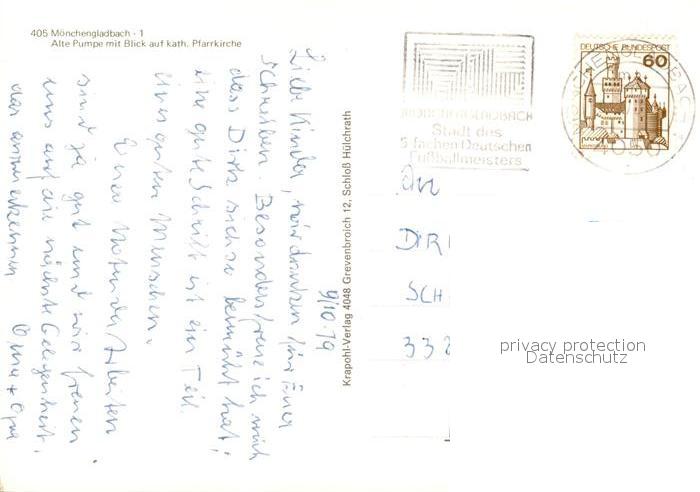 405 Mönchengladbach - 1
Alte Pumpe mit Blick auf kath. Pfarrkirche
9/10.79
Liebe Kinder, wir danken für Euer
Schreiben. Besonders freue ich mich
dass Dirk sich so bemüht hat;
eine gute Schrift ist ein Teil
eines guten Menschen.
Eure Noten der Arbeiten
sind ja gut und wir freuen
uns auf die nächste Gelegenheit,
das anzuerkennen Oma + Opa
Krapohl-Verlag 4048 Grevenbroich 12, Schloß Hülchrath
MÖNCHENGLADBACH
Stadt des
5 fachen Deutschen
Fußballmeisters
DEUTSCHE BUNDESPOST
60
4050
An
DIR
SCH
332
privacy protection
Datenschutz